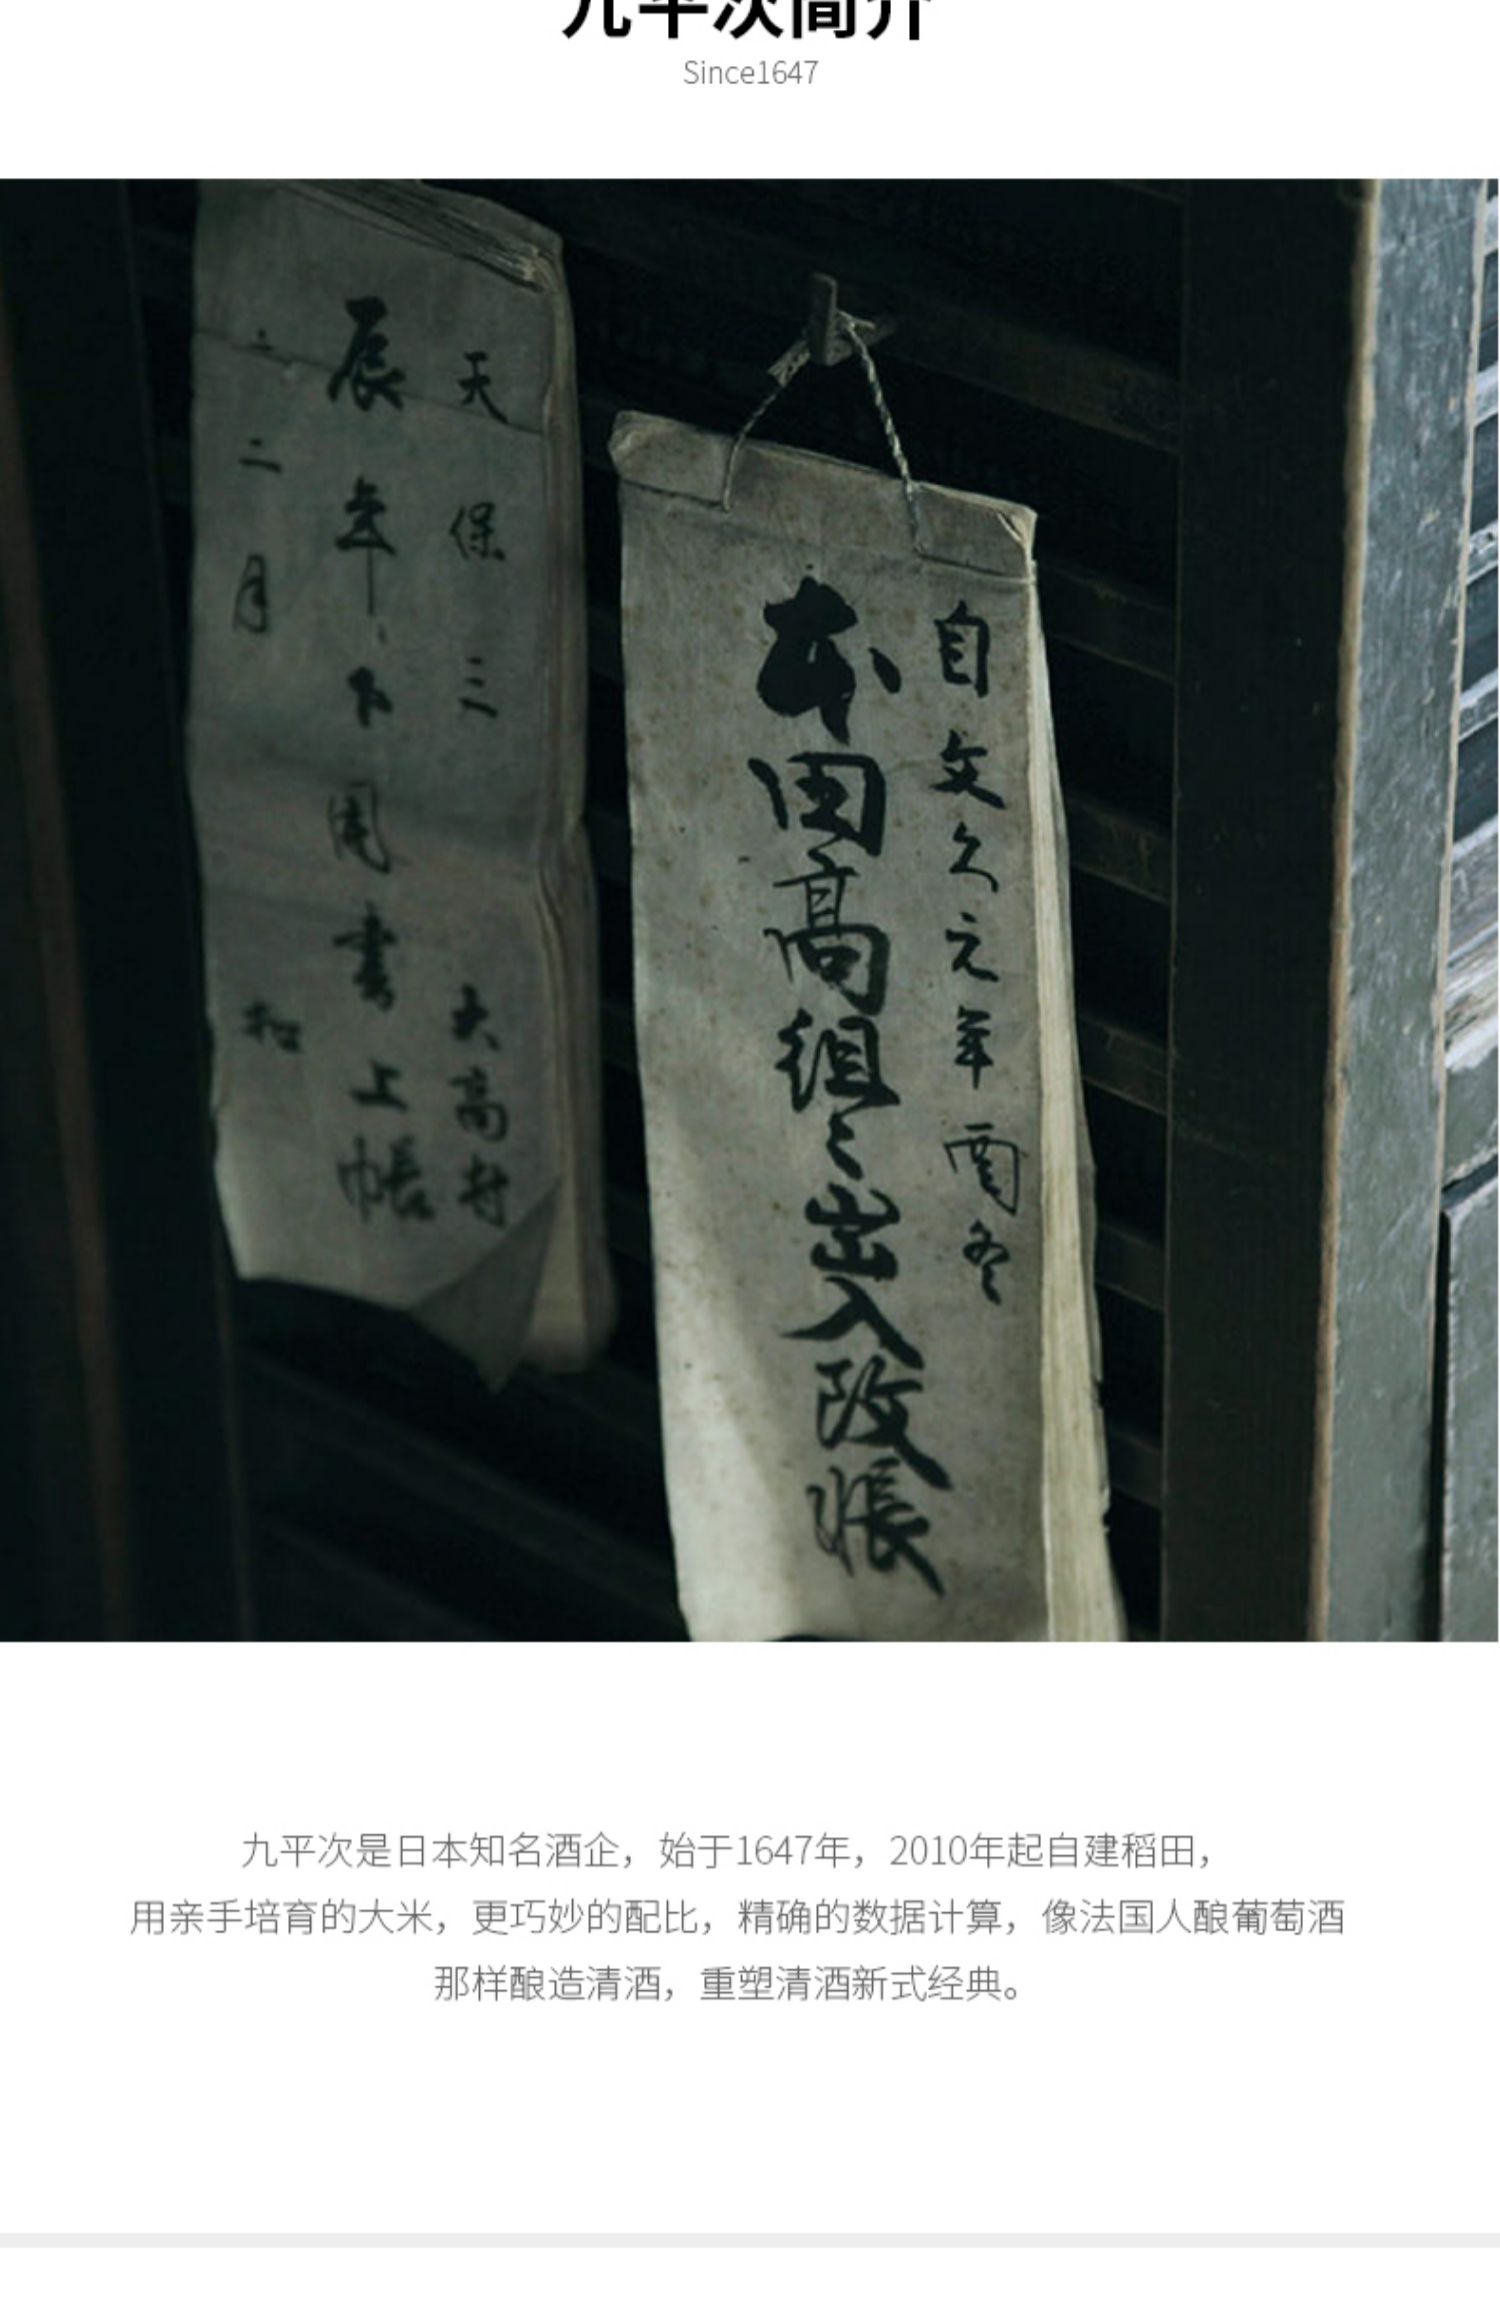 九平次简介
Since1647
天保三 大高村
辰年下用書上帳
二月
自文久元年酉冬
本田高組々出入改帳
九平次是日本知名酒企，始于1647年，2010年起自建稻田，
用亲手培育的大米，更巧妙的配比，精确的数据计算，像法国人酿葡萄酒
那样酿造清酒，重塑清酒新式经典。